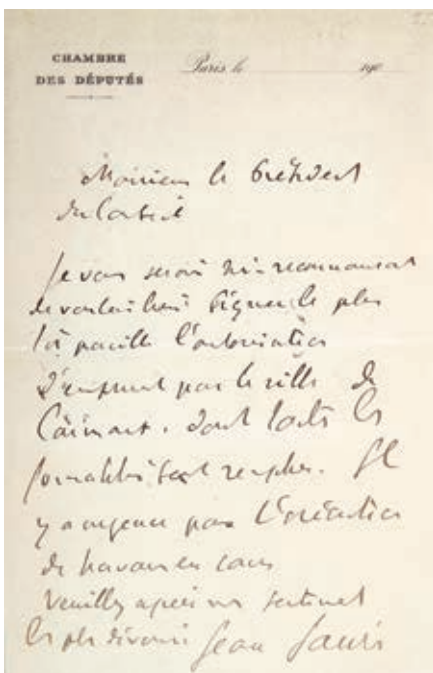 CHAMBRE
DES DÉPUTÉS
Paris le 190
Monsieur le Président
du Conseil
Je vous serais très reconnaissant
de vouloir bien signer le plus
tôt possible l'autorisation
d'emprunt par la ville de
dont toutes les
formalités sont remplies. Il
y a urgence pour l'exécution
de travaux en cours
Veuillez agréer mes sentiments
les plus dévoués Jean Jaurès